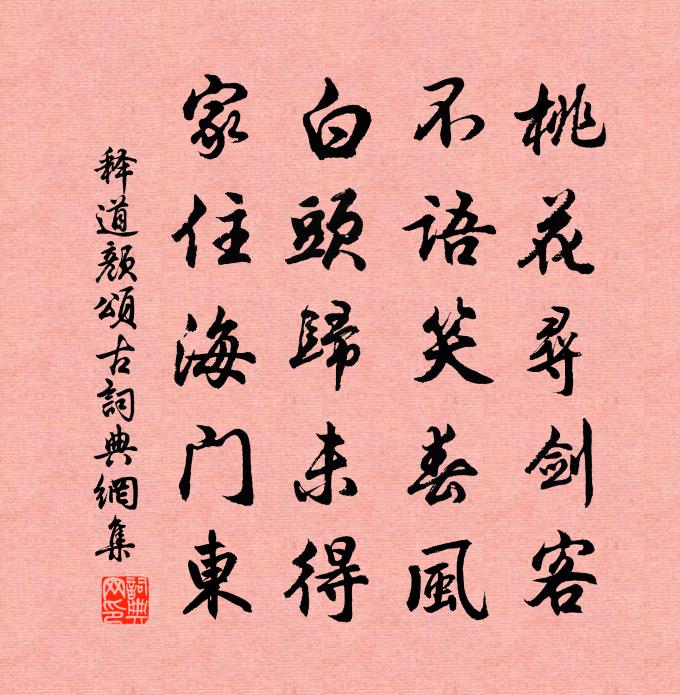 桃花尋劍客
不語笑春風
白頭歸未得
家住海门東
释道顏頌古詞典網集
詞典网印